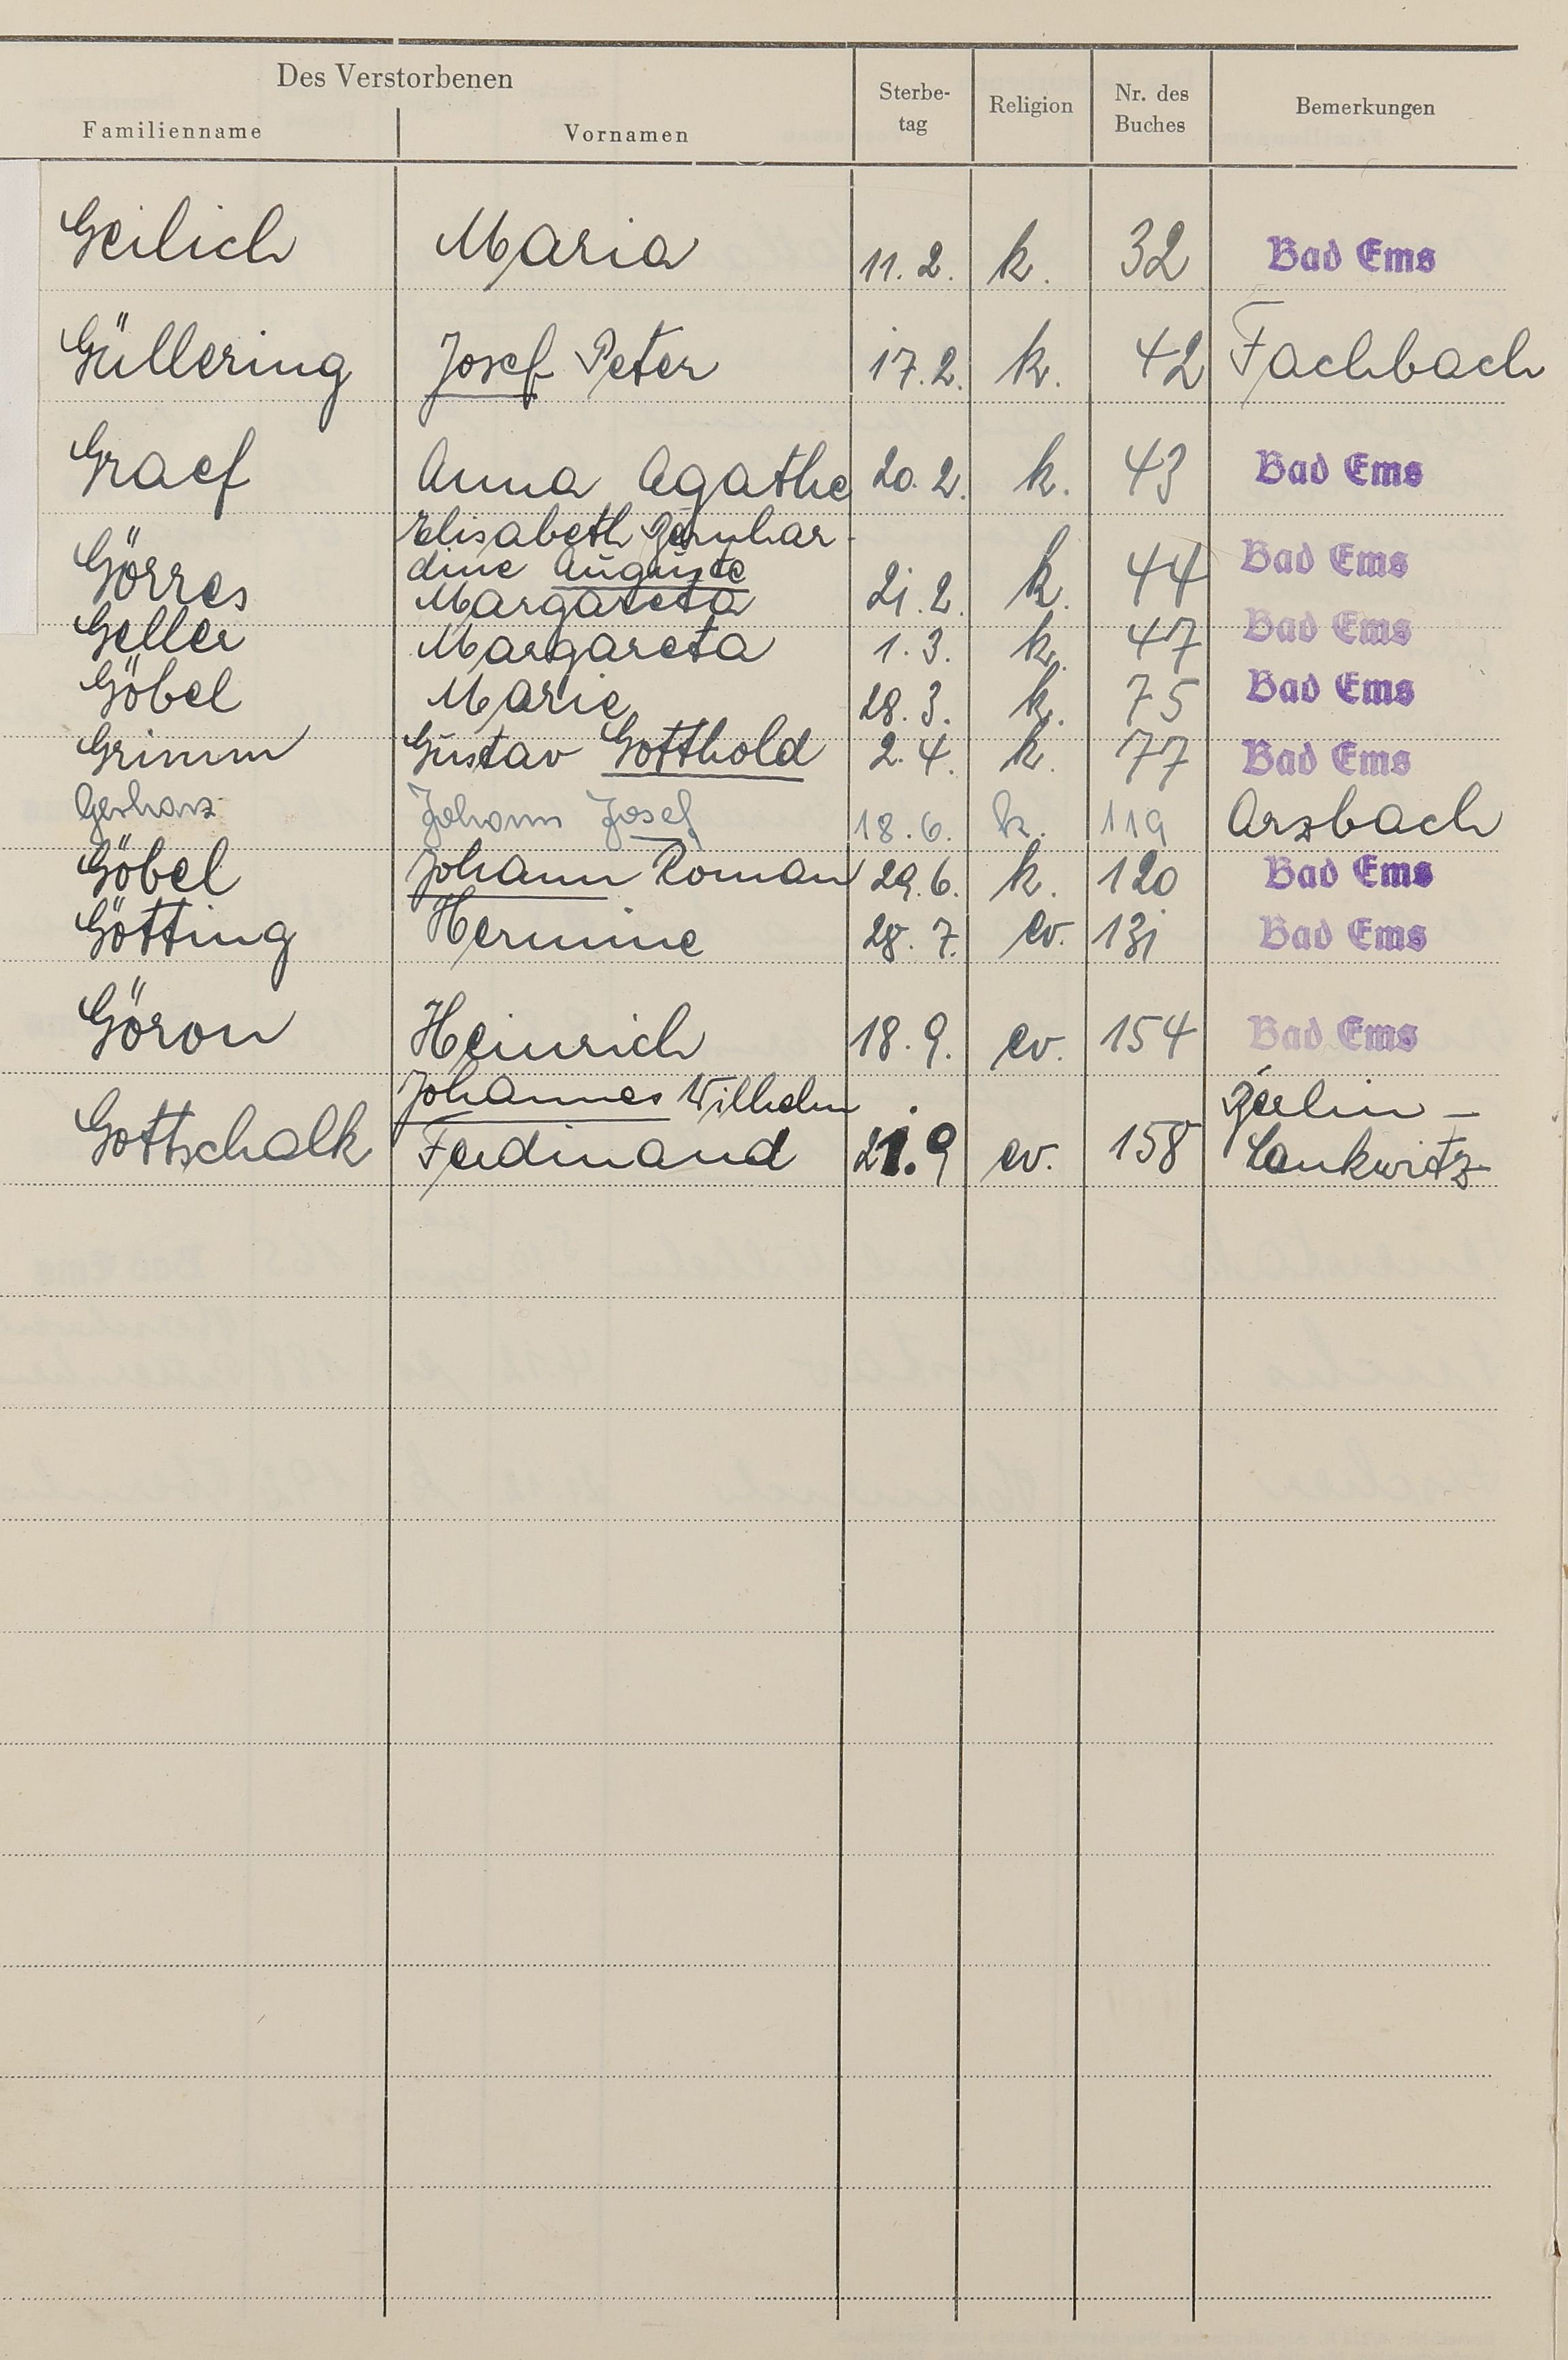 Des Verstorbenen
Familienname Vornamen Sterbe- tag Religion Nr. des Buches Bemerkungen
Geilich Maria 11. 2. k. 32 Bad Ems
Güllering Josef Peter 17. 2. k. 42 Fachbach
Graef Anna Agathe 20. 2. k. 43 Bad Ems
Elisabeth Bernhar-
dine Auguste
Görres Margareta 21. 2. k. 44 Bad Ems
Geller Margareta 1. 3. k. 47 Bad Ems
Göbel Marie 28. 3. k. 75 Bad Ems
Grimm Gustav Gotthold 2. 4. k. 77 Bad Ems
Gerharz Johann Josef 18. 6. k. 119 Arzbach
Göbel Johann Roman 29. 6. k. 120 Bad Ems
Götting Hermine 28. 7. ev. 131 Bad Ems
Göron Heinrich 18. 9. ev. 154 Bad Ems
Johannes Wilhelm Berlin -
Gottschalk Ferdinand 21. 9 ev. 158 Lankwitz